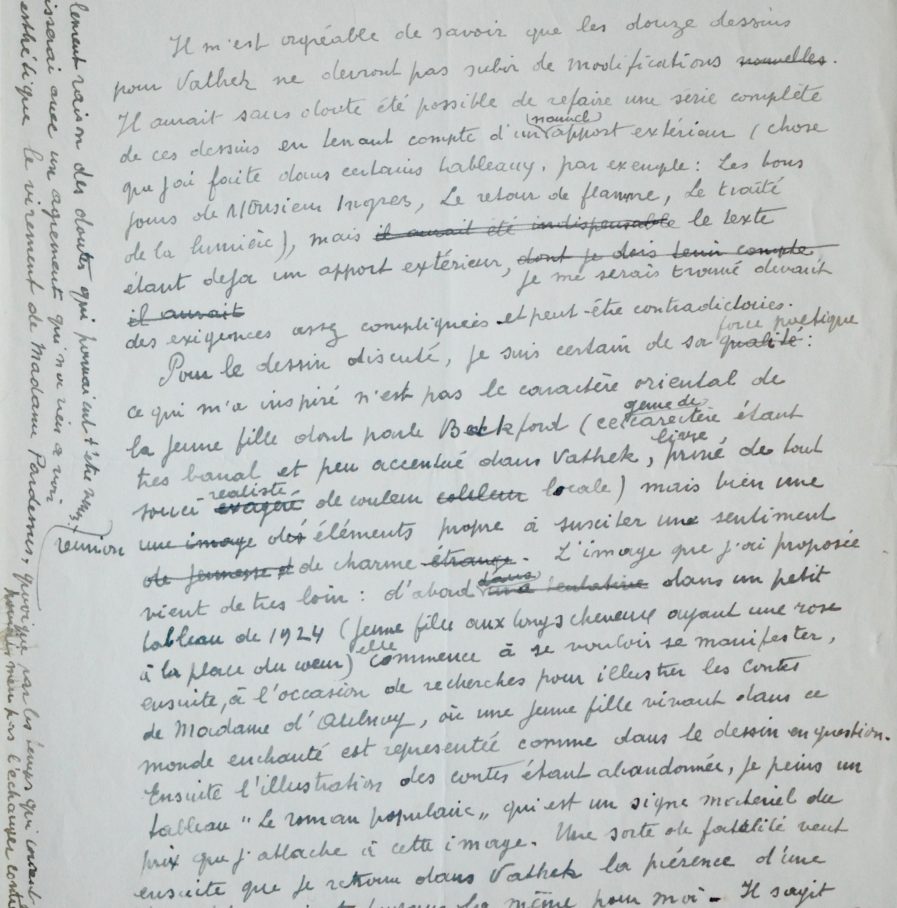 Il m'est agréable de savoir que les douze dessins
pour Vathek ne devront pas subir de modifications nouvelles.
Il aurait sans doute été possible de refaire une série complète
de ces dessins en tenant compte d'un nouvel apport extérieur (chose
que j'ai faite dans certains tableaux, par exemple: Les bons
jours de Monsieur Ingres, Le retour de flamme, Le traité
de la lumière), mais il aurait été indispensable le texte
étant deja un apport extérieur, dont je dois tenir compte,
il aurait je me serais trouvé devant
des exigences assez compliquées et peut-être contradictoires.
Pour le dessin discuté, je suis certain de sa qualité force poétique:
ce qui m'a inspiré n'est pas le caractère oriental de
la jeune fille dont parle Beckford (ce genre de caractère étant
très banal et peu accentué dans Vathek, livre privé de tout
souci exagéré realiste de couleur locale) mais bien une
reunion une image des éléments propre à susciter un sentiment
de jeunesse et de charme étrange. L'image que j'ai proposée
vient de très loin: d'abord dans une tentative dans un petit
tableau de 1924 (jeune fille aux longs cheveux ayant une rose
à la place du coeur) elle commence à se vouloir se manifester,
ensuite, à l'occasion de recherches pour illustrer les contes
de Madame d'Aulnoy, où une jeune fille vivant dans ce
monde enchanté est representée comme dans le dessin en question.
Ensuite l'illustration des contes étant abandonnée, je peins un
tableau "Le roman populaire" qui est un signe matériel du
prix que j'attache à cette image. Une sorte de fatalité veut
ensuite que je retrouve dans Vathek la présence d'une
la même pour moi - Il s'agit
raison des doutes qui pourraient être
avec un agrément qui n'a rien à voir
esthétique le virement de Madame Pardemus, quoique par les temps qui courent
l'échanger contre